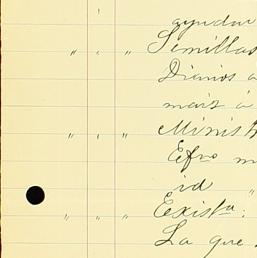 ayudar
" " " Semillas
Diarios a
maiz á
" " " Minist
Efro m
id "
" " " Exist<sup>a</sup>:
La que